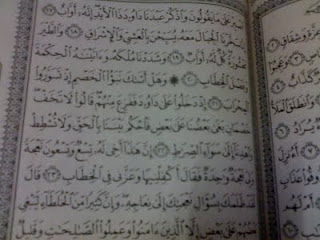 عَلَىٰ مَا يَقُولُونَ وَاذْكُرْ عَبْدَنَا دَاوُودَ ذَا الْأَيْدِ إِنَّهُ أَوَّابٌ ١٧
سَخَّرْنَا الْجِبَالَ مَعَهُ يُسَبِّحْنَ بِالْعَشِيِّ وَالْإِشْرَاقِ ١٨ وَالطَّيْرَ
كُلٌّ لَهُ أَوَّابٌ ١٩ وَشَدَدْنَا مُلْكَهُ وَءَاتَيْنَٰهُ الْحِكْمَةَ
وَفَصْلَ الْخِطَابِ ٢٠ ۞ وَهَلْ أَتَىٰكَ نَبَؤُا الْخَصْمِ إِذْ تَسَوَّرُوا
الْمِحْرَابَ ٢١ إِذْ دَخَلُوا عَلَىٰ دَاوُودَ فَفَزِعَ مِنْهُمْ قَالُوا لَا تَخَفْ
خَصْمَانِ بَغَىٰ بَعْضُنَا عَلَىٰ بَعْضٍ فَاحْكُمْ بَيْنَنَا بِالْحَقِّ وَلَا تُشْطِطْ
وَاهْدِنَا إِلَىٰ سَوَاءِ الصِّرَاطِ ٢٢ إِنَّ هَٰذَا أَخِي لَهُ تِسْعٌ وَتِسْعُونَ نَعْجَةً
وَلِيَ نَعْجَةٌ وَاحِدَةٌ فَقَالَ أَكْفِلْنِيهَا وَعَزَّنِي فِي الْخِطَابِ ٢٣ قَالَ
لَقَدْ ظَلَمَكَ بِسُؤَالِ نَعْجَتِكَ إِلَىٰ نِعَاجِهِ وَإِنَّ كَثِيرًا مِنَ الْخُلَطَاءِ لَيَبْغِي
بَعْضُهُمْ عَلَىٰ بَعْضٍ إِلَّا الَّذِينَ ءَامَنُوا وَعَمِلُوا الصَّٰلِحَٰتِ وَقَلِيلٌ